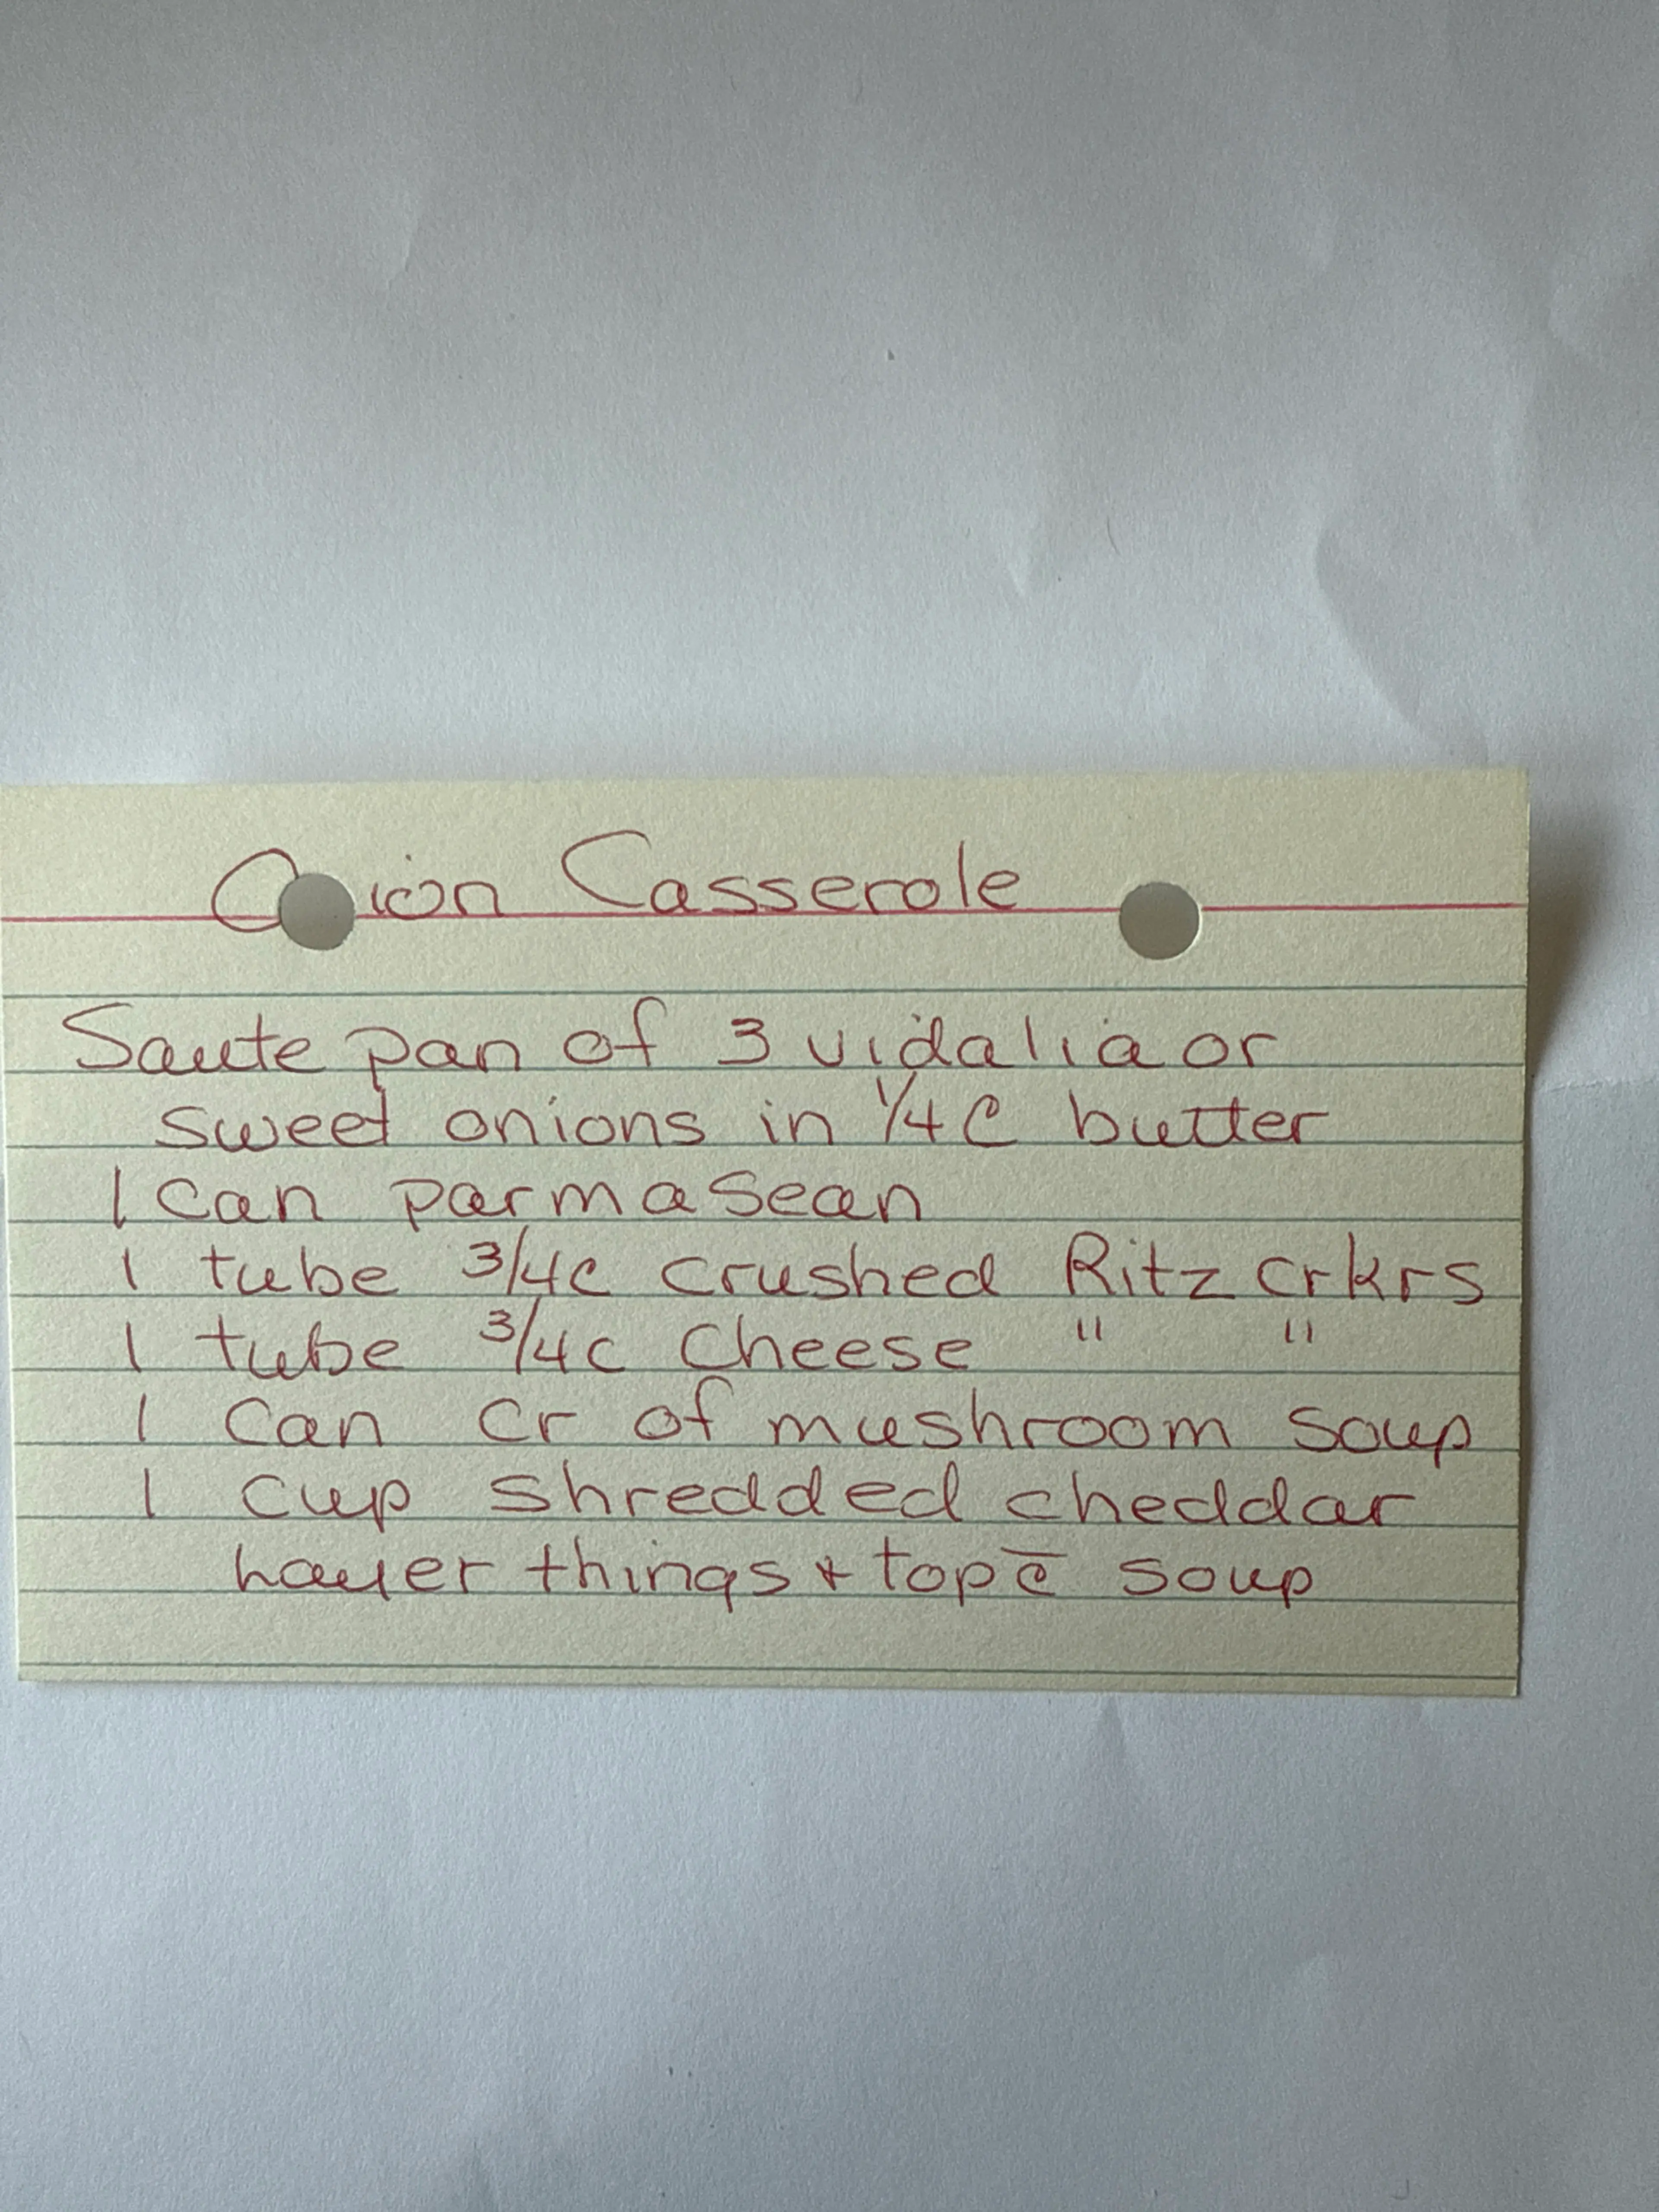 Onion Casserole
Saute pan of 3 vidalia or
sweet onions in 1/4 C butter
1 can parmasean
1 tube 3/4c crushed Ritz crkrs
1 tube 3/4c Cheese " "
1 Can cr of mushroom soup
1 cup shredded cheddar
Layer things + top c̄ soup